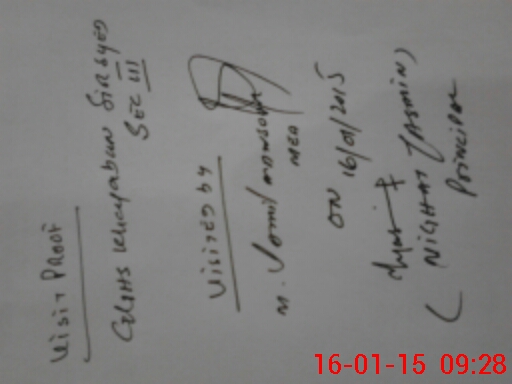 Visit PROOF
GGHS Khayaban Sir Syed
SEC III
Visited by
M. Jamil Mansoor
MEO
ON 16/01/2015
(NIGHAT YASMIN)
Principal
16-01-15 09:28